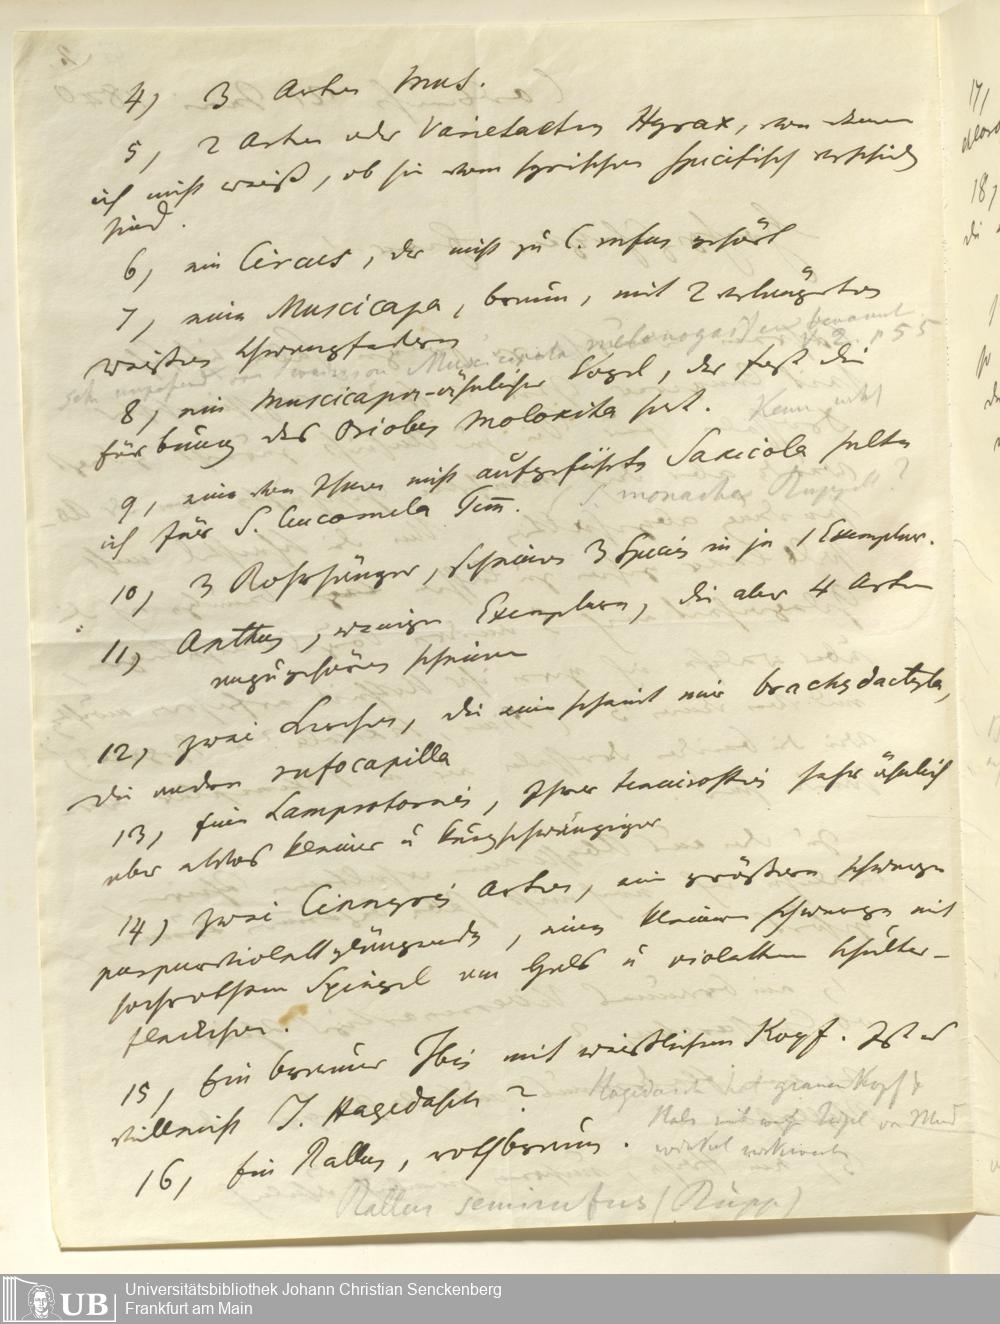 4, 3 Arten Mus.
5, 2 Arten oder Varietaeten Hyrax, von denen
ich nicht weiß, ob sie vom syrischen specifisch verschieden
sind.
6, ein Circus, der nicht zu C. rufus gehört
7, eine Muscicapa, braun, mit 2 verlängerten
weißen Schwanzfedern
Muscicapa melanogaster benannt
p 55
8, ein Muscicapa-ähnlicher Vogel, der fast die
Färbung des Oriolus Moloxita hat.
Kenn nicht
9, eine von Ihnen nicht aufgeführte Saxicola halte
ich für S. leucomela Tem.
S. monacha Rüppell?
10, 3 Rohrsänger, scheinen 3 Species in je 1 Exemplar.
11, Anthus, wenige Exemplare, die aber 4 Arten
anzugehören scheinen
12, zwei Lerchen, die eine scheint mir brachydactyla,
die andere rufocapilla
13, Ein Lamprotornis, Ihrer tenuirostris sehr ähnlich
aber etwas kleiner u kurzschwänziger
14, zwei Cinnyris Arten, eine größere schwarze
purpurviolettglänzende, eine kleinere schwarze mit
hochrothem Spiegel am Hals u violetten Schulter-
fleckchen.
15, Ein brauner Ibis mit weißlichem Kopf. Ist er
vielleicht I. Hagedasch?
Hagedasch hat grauen Kopf &
Hals mit
16, Ein Rallus, rothbraun.
Rallus semirufus (Rüpp)
17,
18,
Universitätsbibliothek Johann Christian Senckenberg
Frankfurt am Main
UB